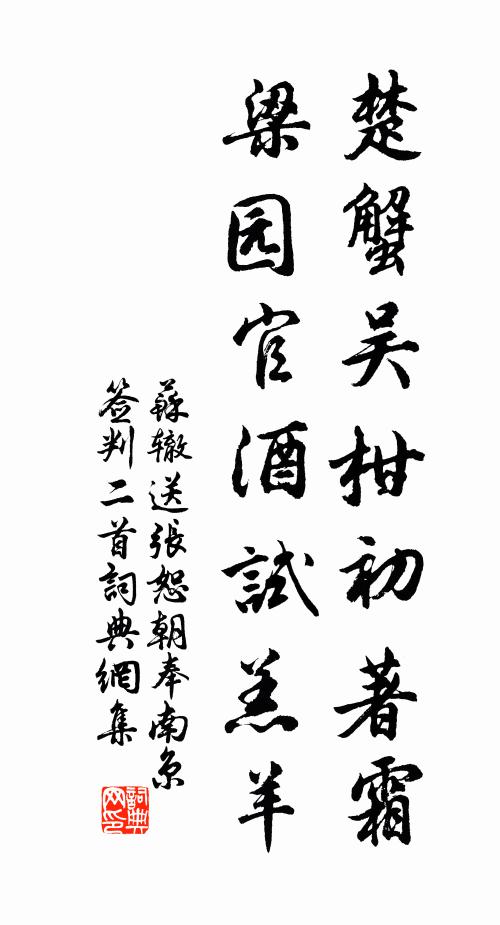 楚蟹吴柑初著霜
梁园官酒試羔羊
蘇辙送張恕朝奉南京
签判二首詞典網集
詞典
网印